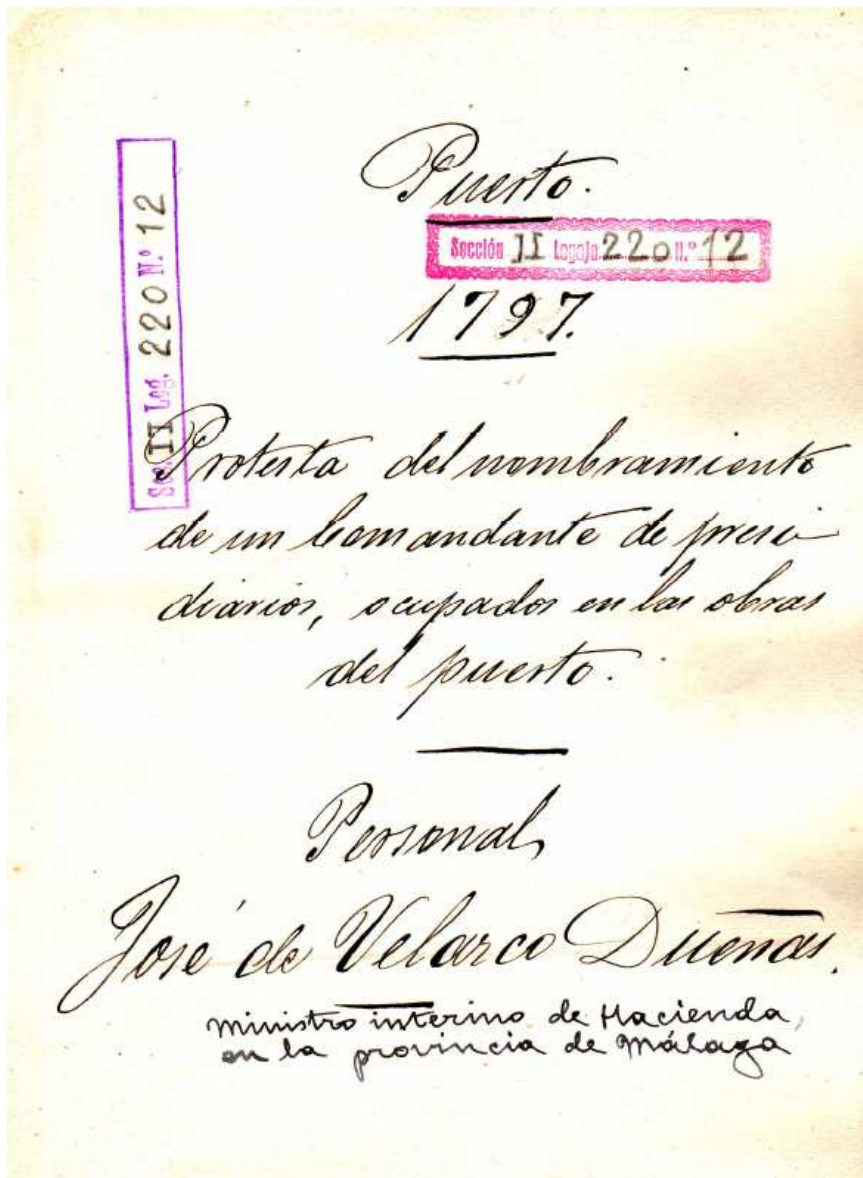 Puerto.
Sección II Legajo 220 N.º 12
Sec. II Leg. 220 N.º 12
1797.
Protesta del nombramiento
de un Comandante de presi-
diarios, ocupados en las obras
del puerto.
Personal,
José de Velasco Dueñas.
ministro interino de Hacienda,
en la provincia de Málaga